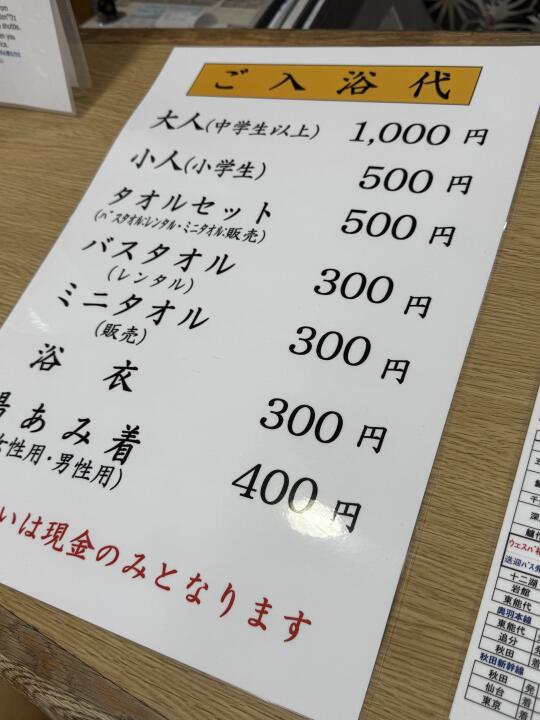 ご入浴代
大人(中学生以上) 1,000 円
小人(小学生) 500 円
タオルセット 500 円
(バスタオル:レンタル・ミニタオル:販売)
バスタオル 300 円
(レンタル)
ミニタオル 300 円
(販売)
浴衣 300 円
湯あみ着 400 円
女性用・男性用)
いは現金のみとなります
ウェスパ
送迎バス発
十二湖
岩館
東能代
奥羽本線
東能代 発
追分 着
秋田 着
秋田新幹線
秋田 発
仙台 着
東京 着